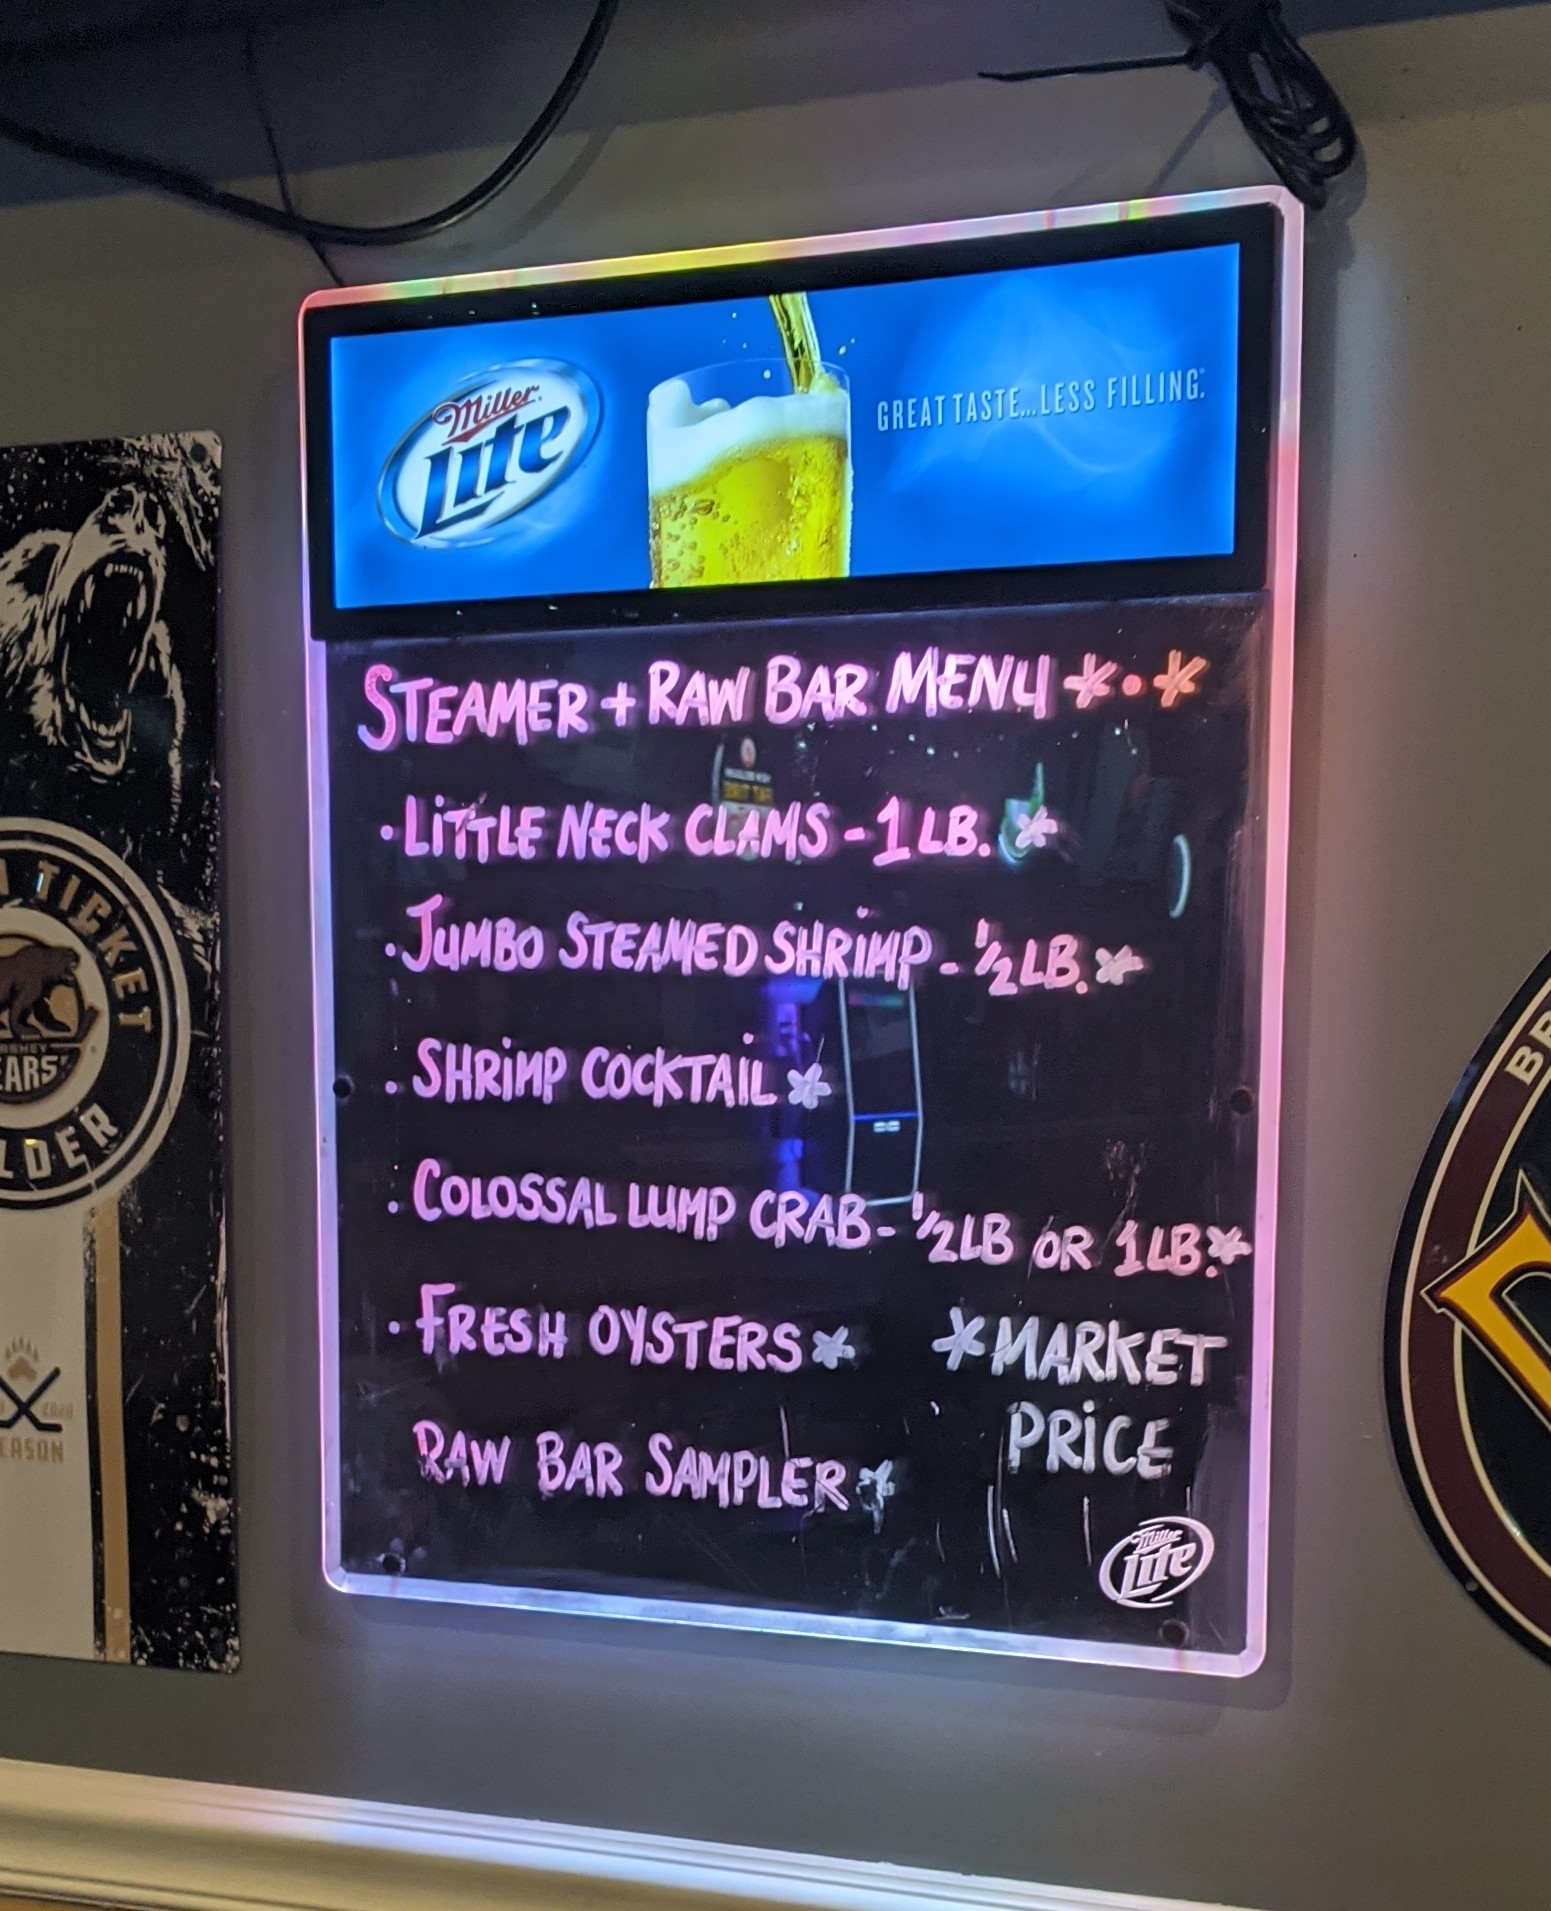 Miller
Lite
GREAT TASTE...LESS FILLING.
STEAMER + RAW BAR MENU *·*
·LITTLE NECK CLAMS - 1 LB. *
·JUMBO STEAMED SHRIMP - 1/2 LB. *
·SHRIMP COCKTAIL *
·COLOSSAL LUMP CRAB - 1/2 LB OR 1 LB. *
·FRESH OYSTERS *
*MARKET
PRICE
RAW BAR SAMPLER *
Miller
Lite
TICKET